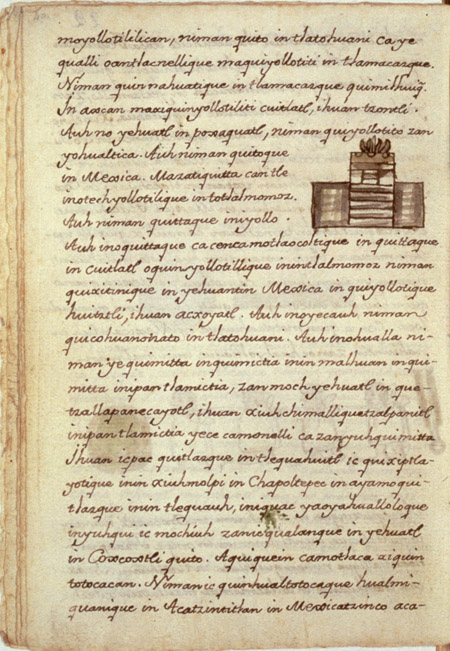 moyollotililican, niman quito in tlatohuani ca ye
qualli oantlacnellique maquiyollotiti in tlamacazque.
Niman quin nahuatique in tlamacazque quimilhuiq̃.
In axcan maxiquinyollotiliti cuitlatl, ihuan tzontli.
Auh no yehuatl in poxaquatl, niman quiyollotito zan
yohualtica. Auh niman quitoque
in Mexica. Mazatiquitta can tle
inotechyollotilique in totlalmomoz.
Auh niman quittaque in yollo.
Auh inoquittaque ca cencamotlaocoltique in quittaque
in cuitlatl oquinyollotillique inintlalmomoz niman
quixitinique in yehuantin Mexica in quiyollotique
huitztli, ihuan acxoyatl. Auh inoyecauh niman
quicohuanotzato in tlatohuani. Auh inohualla ni-
man ye quimitta inquimictia inin malhuan inqui-
mitta inipan tlamictia, zan moch yehuatl in que-
tzallapanecayotl, ihuan xiuhchimalliquetzalpanitl
inipan tlamictia yece camonelli ca zanyuhquimitta
Ihuan icpac quitlazque in tlequahuitl ic quixiptla-
yotique inin xiuhmolpi in Chapoltepec in ayamo qui-
tlazque inin tlequauh, iniquac yaoyahualloloque
inyuhqui ic mochiuh zanicqualanque in yehuatl
in Coxcoxtli quito. Aquiquein camotlaca aiquin
totocacan. Niman ic quinhualtotocaque hualmi-
quanique in Acatzintitlan in Mexicatzinco aca-